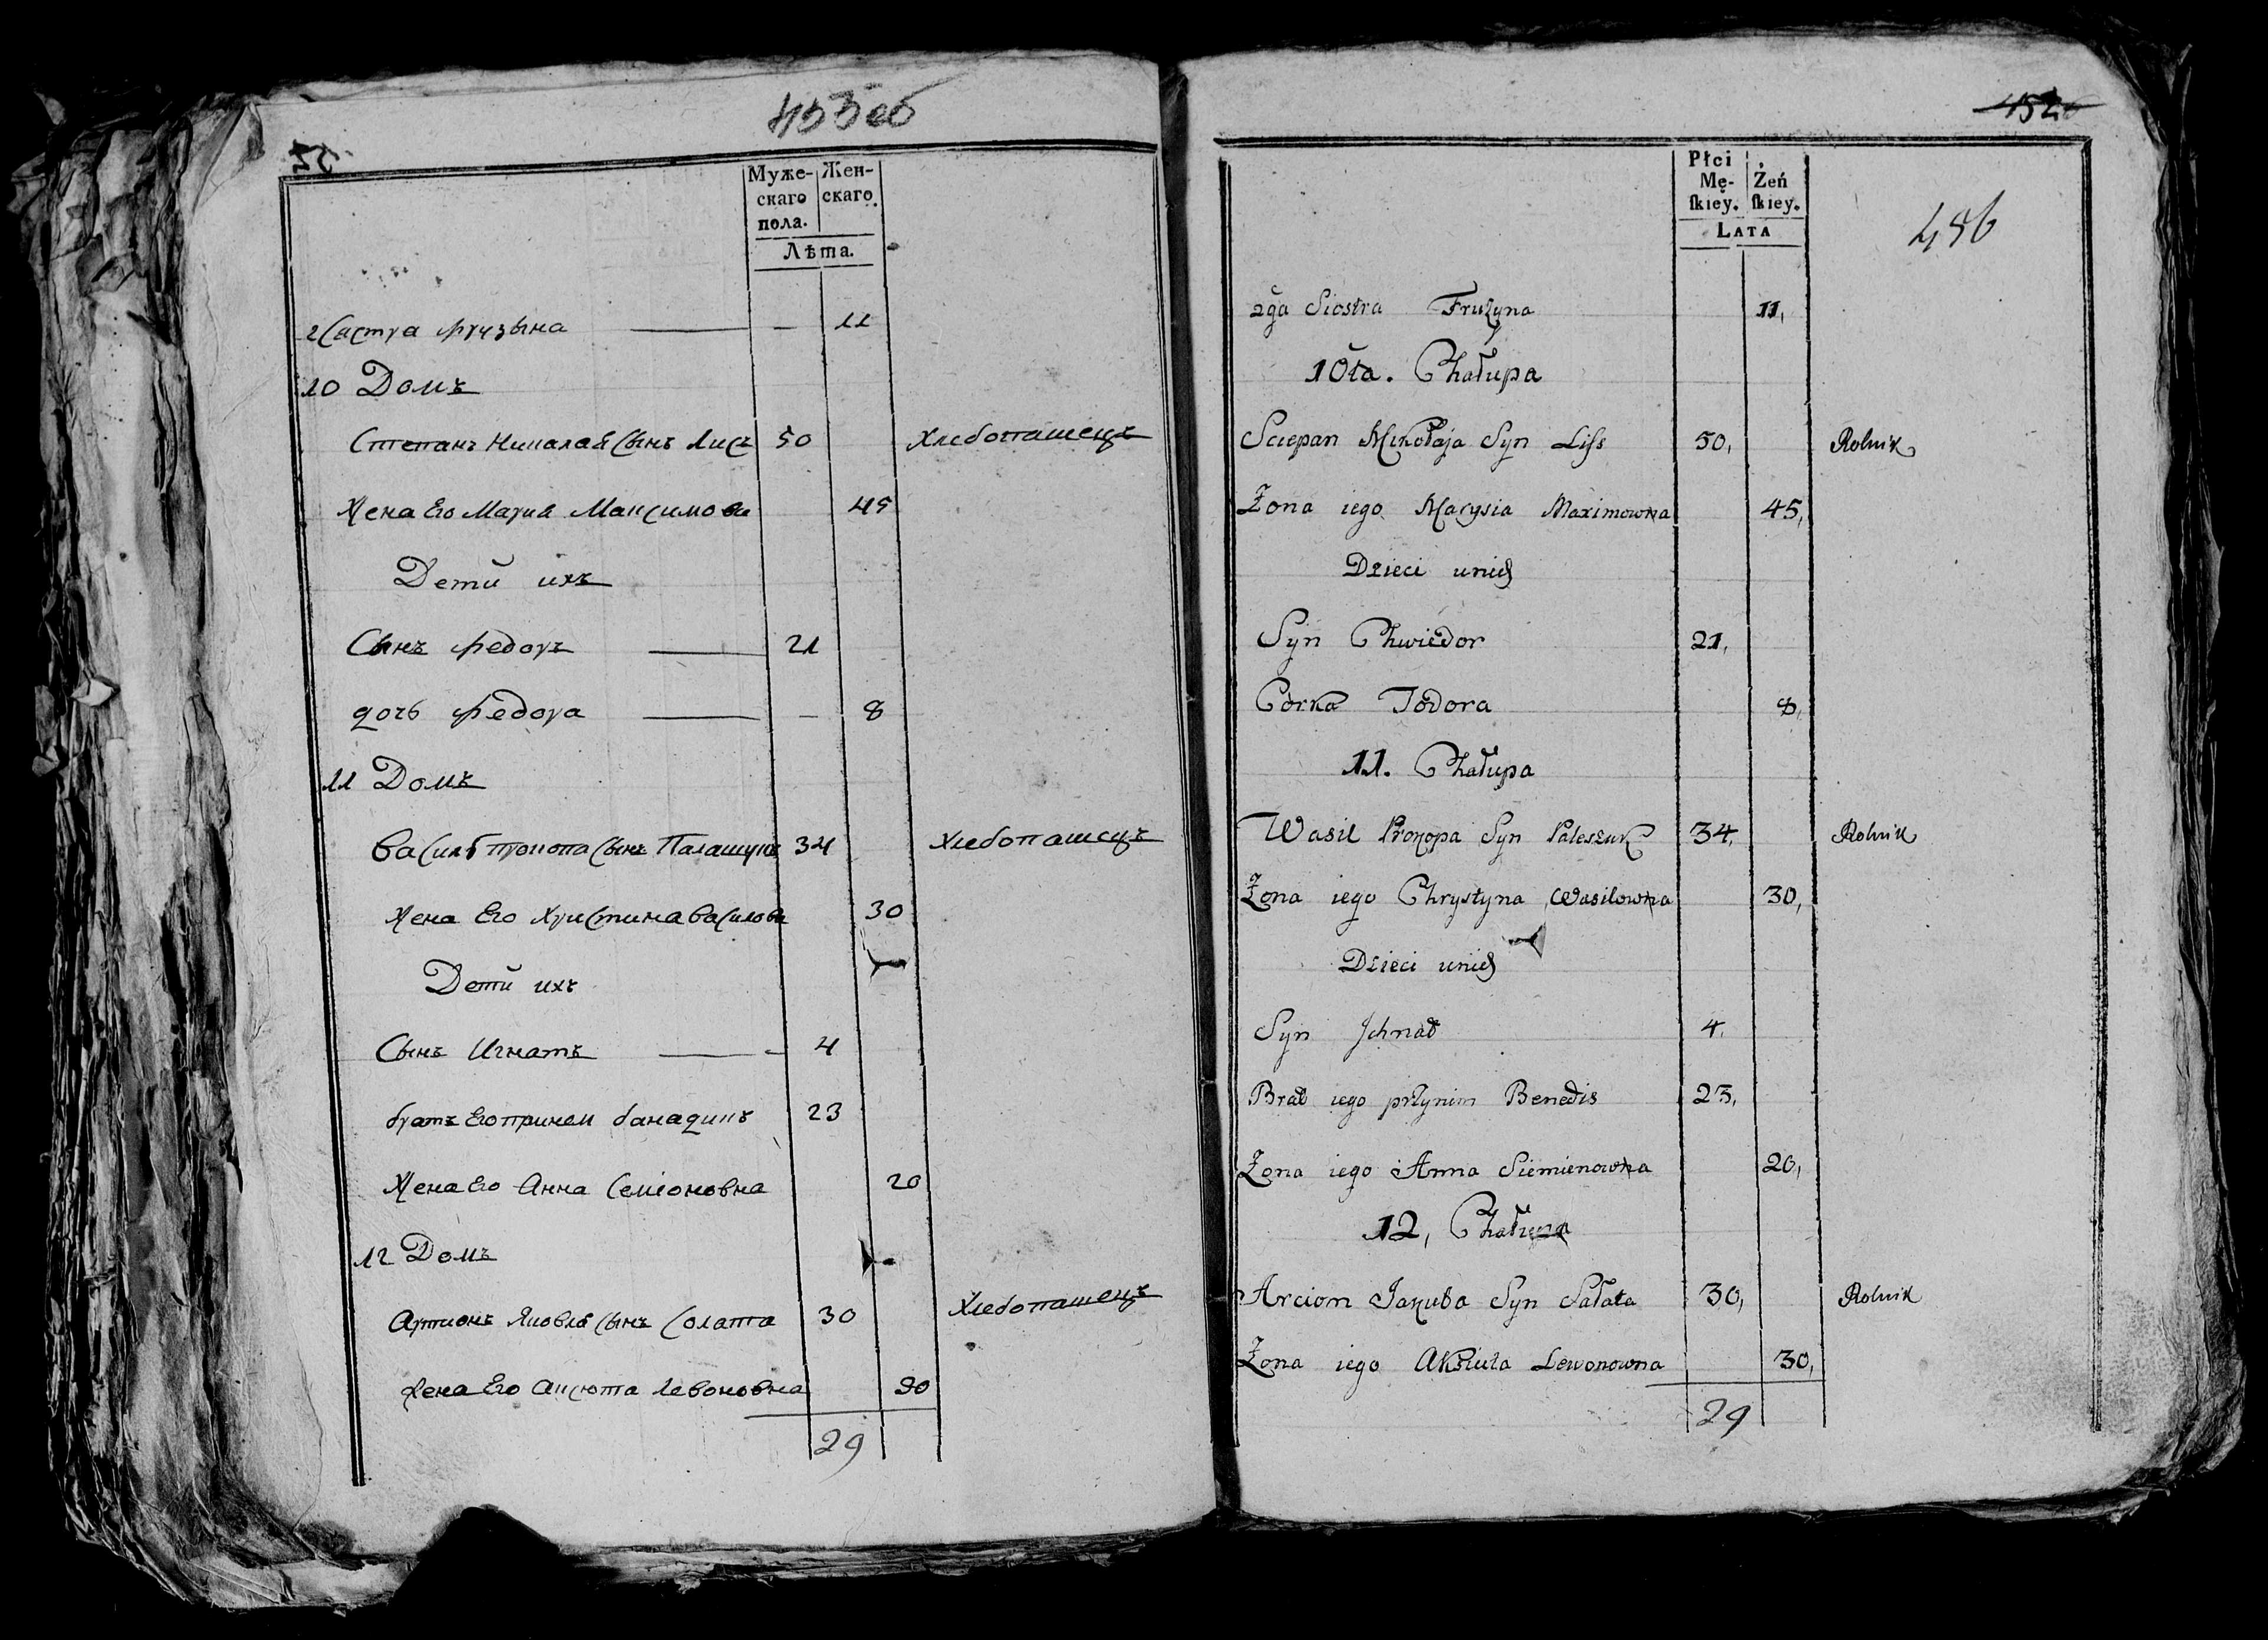 455об
Муже-
скаго
пола.
Жен-
скаго.
Лѣта.
2 Састра Фрузына — — 11
10 Домъ
Степанъ Никалая Сынъ Лисъ 50 Хлебопашецъ
Жена Его Мария Максимова 45
Дети ихъ
Сынъ Федоръ — 21
дочь Федора — — 8
11 Домъ
Василь Прокопа Сынъ Палашукъ 34 Хлебопашецъ
Жена Его Христина Василова 30
Дети ихъ
Сынъ Игнатъ — 4
братъ Его принем банадикъ 23
Жена Его Анна Семионовна 20
12 Домъ
Артионъ Яковля Сынъ Солата 30 Хлебопашецъ
Жена Его Аксюта Левоновна 30
29
452
456
Płci
Mę-
ſkiey.
Żeń
ſkiey.
LATA
2ga Siostra Frużyna 11,
10ta. Chałupa
Sciepan Mikołaja Syn Liſs 50, Rolnik
Żona iego Marysia Maximowna 45,
Dzieci unich
Syn Chwiedor 21,
Córka Todora 8,
11. Chałupa
Wasil Prokopa Syn Paleszuk 34, Rolnik
Żona iego Chrystyna Wasilowna 30,
Dzieci unich
Syn Jhnat 4.
Brat iego przynim Benedis 23,
Żona iego Anna Siemienowna 20,
12, Chałupa
Arciom Jakuba Syn Sałata 30, Rolnik
Żona iego Aksiuta Lewonowna 30,
29